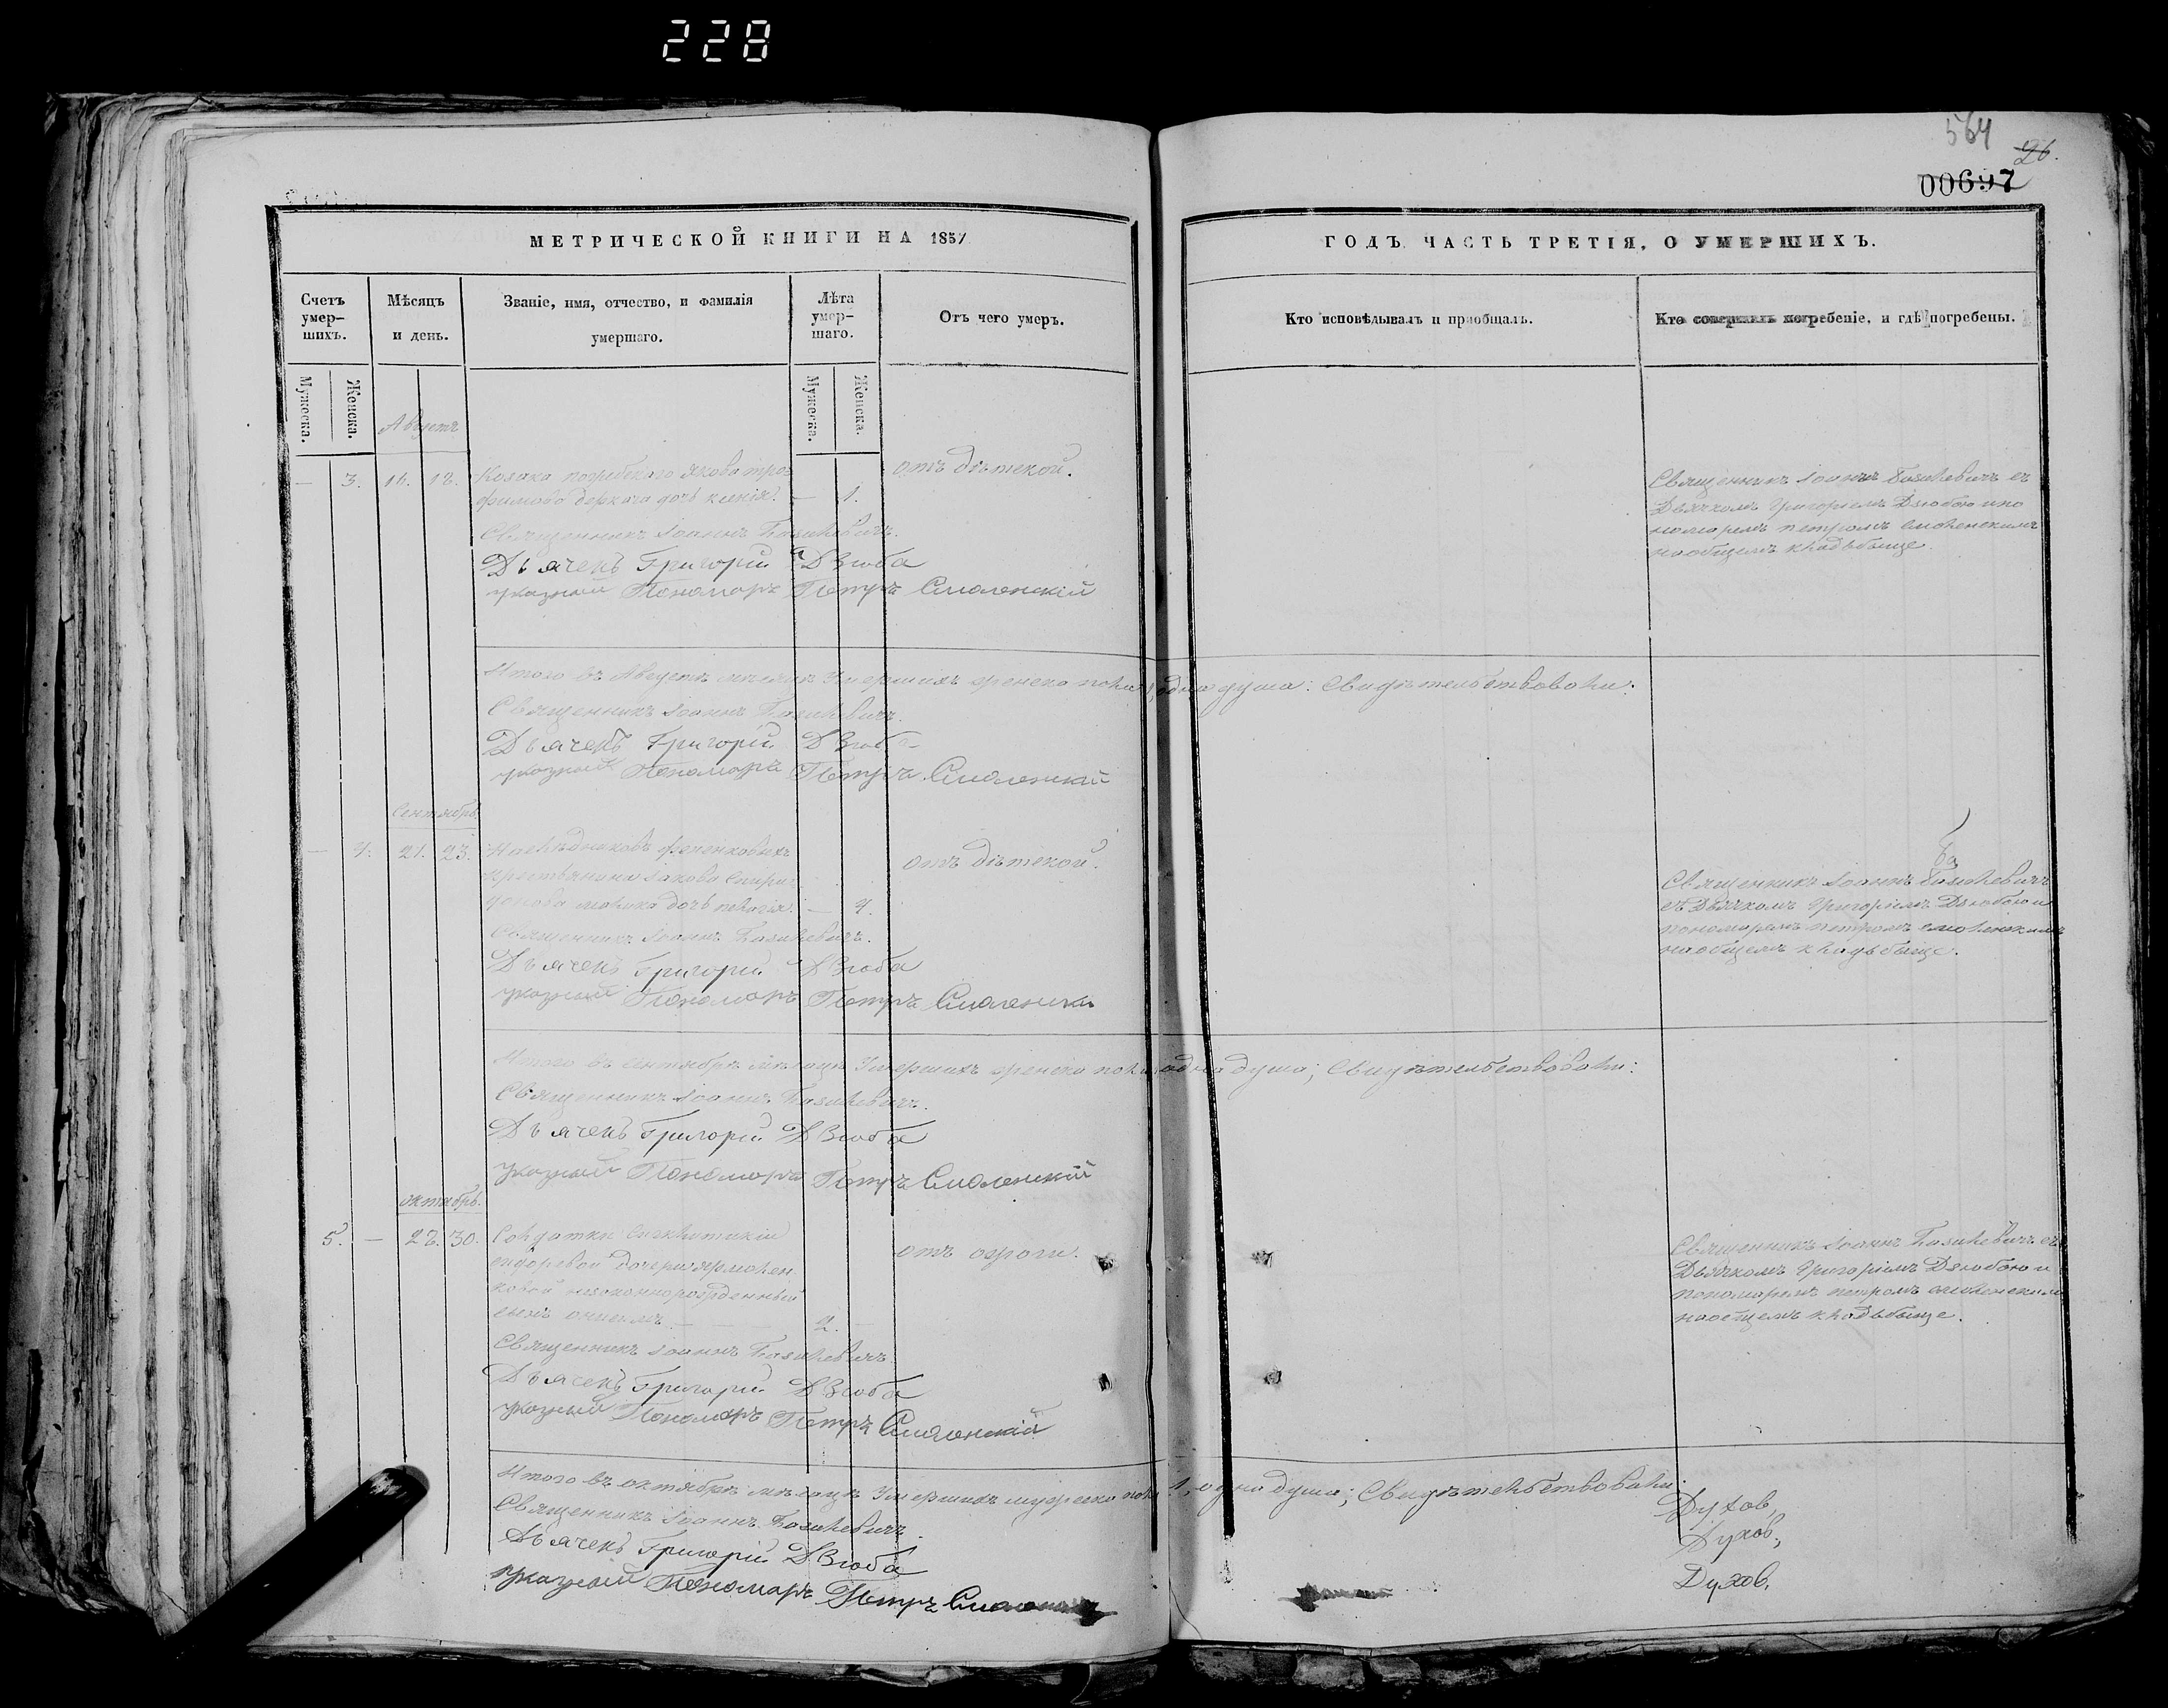 228
564
26.
00697
МЕТРИЧЕСКОЙ КНИГИ НА 1857
ГОДЪ ЧАСТЬ ТРЕТІЯ, О УМЕРШИХЪ.
Счетъ умер-
шихъ.
Мѣсяцъ
и день.
Званіе, имя, отчество, и фамилія
умершаго.
Лѣта
умер-
шаго.
Отъ чего умеръ.
Кто исповѣдывалъ и пріобщалъ.
Кто совершалъ погребеніе, и гдѣ погребены.
Мужеска.
Женска.
Мужеска.
Женска.
Августъ
— 3. 16. 18. Козака Якова Тро-
фимова Деркача дочь Ксенія. — 1.
отъ дѣтской.
Священникъ Іоаннъ Базилевичъ съ
Дьячкомъ Григоріемъ Дзюбою и по
номаремъ Петромъ Смоленскимъ
на общемъ кладьбище.
Священникъ Іоаннъ Базилевичъ.
Дьячекъ Григорій Дзюба
указный Пономарь Петръ Смоленскій
Итого въ Августѣ мѣсяцѣ Умершихъ женска пола 1, одна душа: Свидѣтельствовали:
Священникъ Іоаннъ Базилевичъ.
Дьячекъ Григорій Дзюба
указный Пономарь Петръ Смоленскій
Сентябрь
— 4. 21. 23. Наслѣдниковъ
крестьянина Іакова Спири-
донова дочь — 4.
отъ дѣтской.
Ба
Священникъ Іоаннъ Базилевичъ
съ Дьячкомъ Григоріемъ Дзюбою и
пономаремъ Петромъ Смоленскимъ
на общемъ кладьбище.
Священникъ Іоаннъ Базилевичъ.
Дьячекъ Григорій Дзюба
указный Пономарь Петръ Смоленскій
Итого въ Сентябрѣ мѣсяцѣ Умершихъ женска пола одна душа; Свидѣтельствовали:
Священникъ Іоаннъ Базилевичъ.
Дьячекъ Григорій Дзюба
указный Пономарь Петръ Смоленскій
октябрь.
5. — 28. 30. Солдатки
дочери
незаконнорожденный
сынъ — 2. —
Священникъ Іоаннъ Базилевичъ съ
Дьячкомъ Григоріемъ Дзюбою и
пономаремъ Петромъ Смоленскимъ
на общемъ кладьбище.
Священникъ Іоаннъ Базилевичъ
Дьячекъ Григорій Дзюба
указный Пономарь Петръ Смоленскій
Итого въ октябрѣ мѣсяцѣ Умершихъ мужеска пола 1, одна душа; Свидѣтельствовали
Священникъ Іоаннъ Базилевичъ.
Дьячекъ Григорій Дзюба
указный Пономарь Петръ
Духов,
Духов,
Духов,